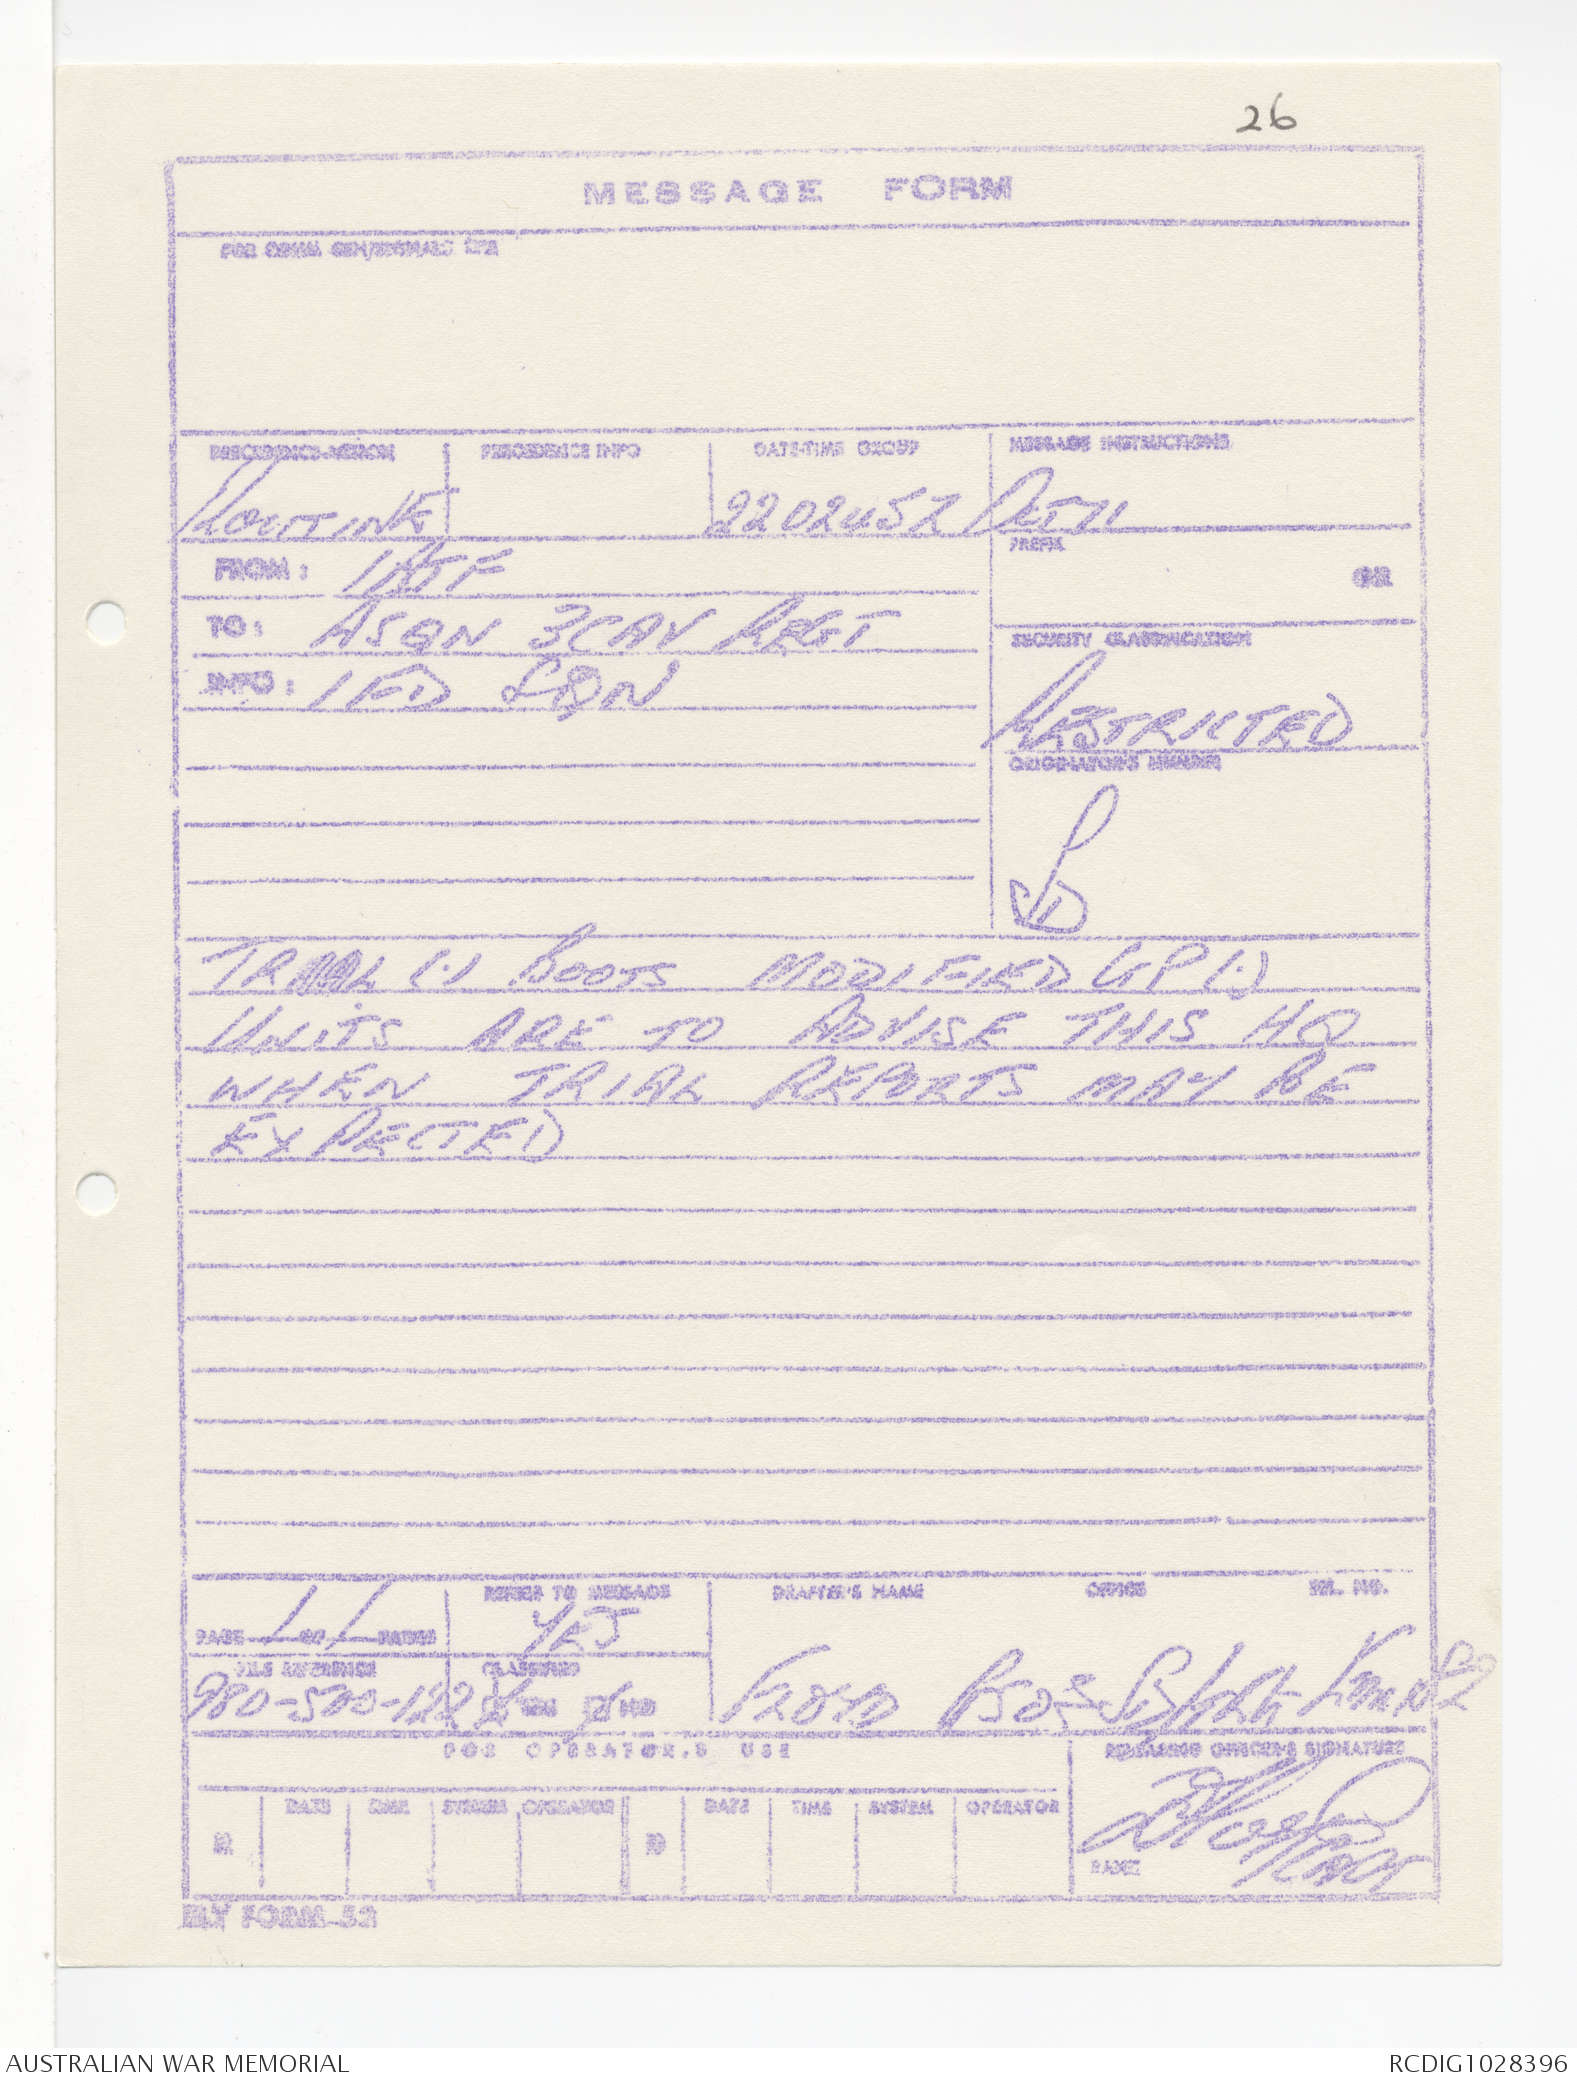 26
MESSAGE FORM
FOR COMM CEN/SIGNALS USE
PRECEDENCE-ACTION PRECEDENCE INFO DATE-TIME GROUP MESSAGE INSTRUCTIONS
ROUTINE 220245Z
PREFIX
FROM: 1ATF
GR
TO: ASQN 3CAV REGT
SECURITY CLASSIFICATION
INFO: 1FD SQN
RESTRICTED
ORIGINATOR'S NUMBER
TRIAL (.) BOOTS MODIFIED GP (.)
UNITS ARE TO ADVISE THIS HQ
WHEN TRIAL REPORTS MAY BE
EXPECTED
PAGE 1 OF 1 PAGES
REFER TO MESSAGE
YES
DRAFTER'S NAME OFFICE TEL. NO.
FILE REFERENCE
980-500-122
CLASSIFIED
YES NO
FOR OPERATOR'S USE
RELEASING OFFICER'S SIGNATURE
R DATE TIME SYSTEM OPERATOR D DATE TIME SYSTEM OPERATOR
NAME
AUSTRALIAN WAR MEMORIAL
RCDIG1028396